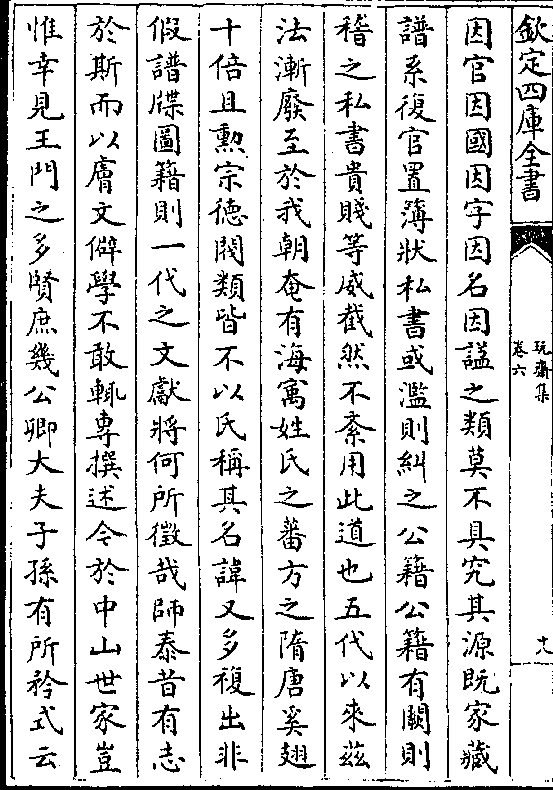 欽定四庫全書
玩齋集
卷六
十九
因官因國因字因名因諡之類莫不具究其源既家藏
譜系復官置簿狀私書或濫則糾之公籍公籍有闕則
稽之私書貴賤等威截然不紊用此道也五代以來茲
法漸廢至於我朝奄有海寓姓氏之蕃方之隋唐奚翅
十倍且勲宗德閥類皆不以氏稱其名諱又多複出非
假譜牒圖籍則一代之文獻將何所徴哉師泰昔有志
於斯而以膚文僻學不敢輒專撰述今於中山世家豈
惟幸見王門之多賢庶幾公卿大夫子孫有所矜式云